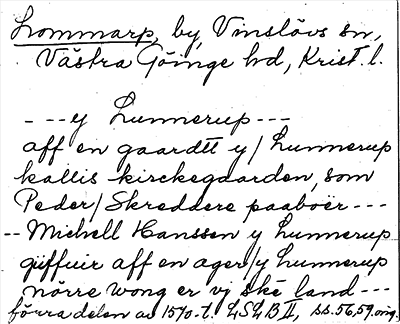 Lommarp, by, Vinslövs sn,
Västra Göinge hd, Krist. l.
- --y Lunnerup ---
aff en gaardtt y/ Lunnerup
kallis kirckegaarden, som
Peder/ Skreddere paaboër ---
-- Michell Hanssen y Lunnerup
giffuir aff en ager/y Lunnerup
nörre wong er vj ske land ---
förra delen av 1570-t. LSLB II, ss. 56, 59, orig.